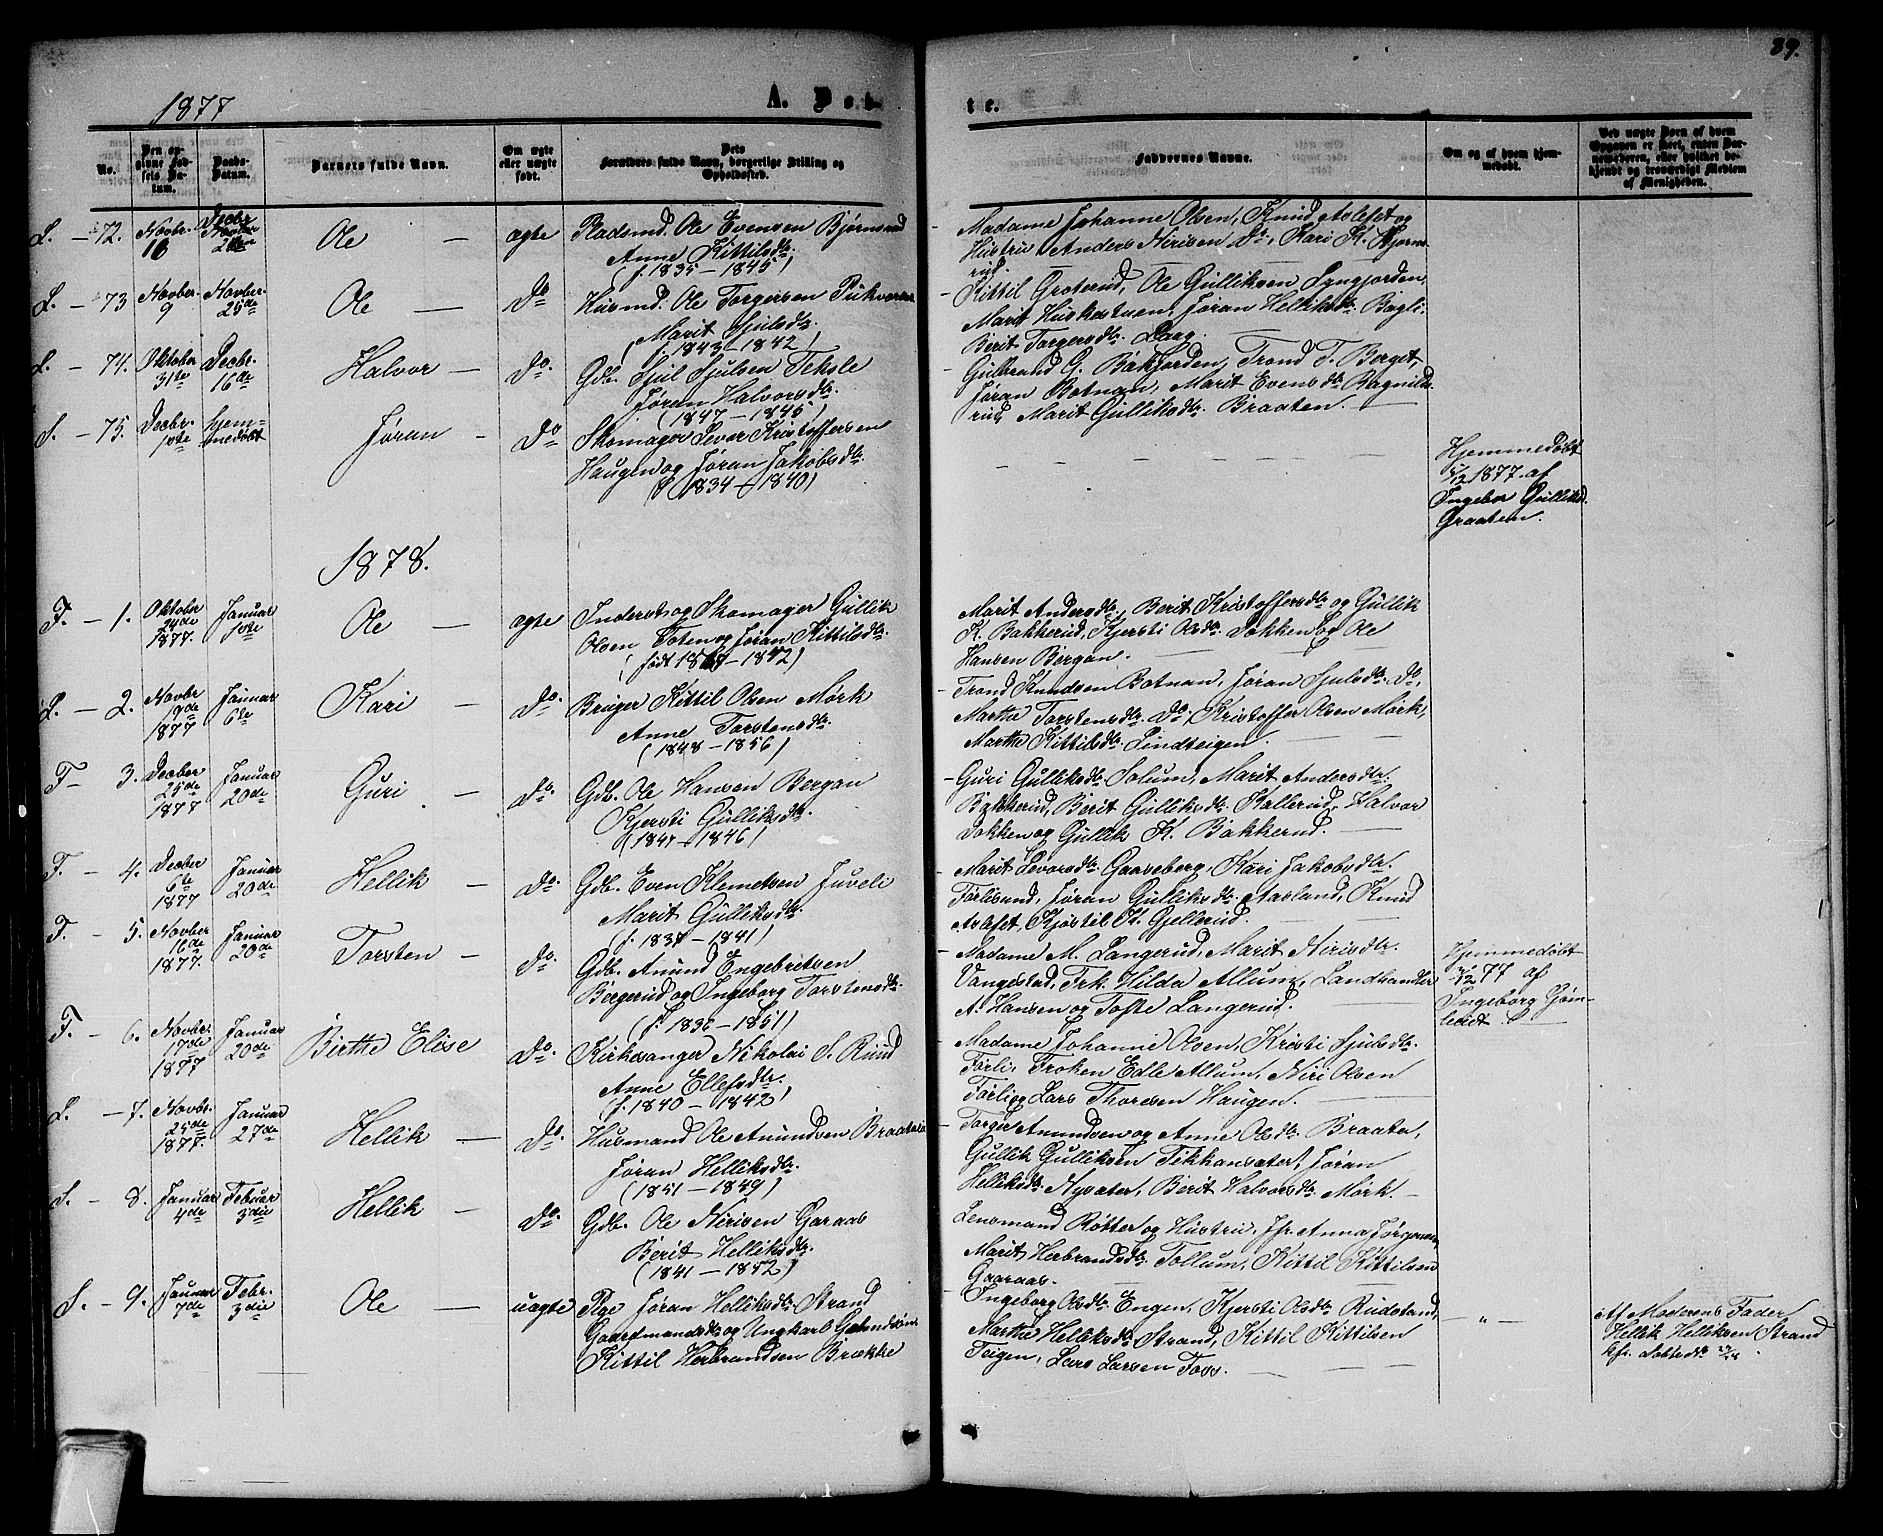 1877
A. Døbte.
89.
No.
Den opgivne Fødsels Datum.
Daabs-Datum.
Barnets fulde Navn.
Om ægte eller uægte født.
Dets Forældres fulde Navn, borgerlige Stilling og Opholdssted.
Faddernes Navne.
Om og af hvem hjemmedøbt.
Ved uægte Børn af hvem Opgaven er skeet, enten Barnemoderen, eller hvilket bekjendt og troværdigt Medlem af Menigheden.
L. - 72. Novbr. 16
Decbr 26
Ole — ægte
Pladsmd. Ole Evensen Bjørnsrud
Anne Kittilsdtr.
(f. 1835 - 1845)
Madame Johanne Olsen, Knud Aslefet og
Hustru Anders Nirisen Do, Kari K. Bjørns-
rud.
L. - 73 Novber 9
Novber. 25de
Ole — Do
Husmd. Ole Torgersen
Marit Sjulsdtr.
(f. 1843 - 1842)
Kittil Groterud, Ole Gulliksen Lyngjorden,
Marit Huskestuen, Jøran Helliksdtr. Bagli
Berit Torgersdtr. Daag.
L. - 74. Oktober 31te
Decbr. 16de
Halvor — Do.
Gdb. Sjul Sjulsen Teksle
Jøran Halvorsdtr.
(1847 - 1845)
Gulbrand G. Bakjorden, Trond T. Berget,
Jøran Botnan, Marit Evensdtr. Bagnilds
rud, Marit Gulliksdtr. Braaten. —
S. - 75. Decbr. 1ste
hjem-
medøbt
Jøran - Do
Skomager Levor Kristoffersen
Haugen og Jøran Jakobsdtr.
(f. 1834 - 1840)
Hjemmedøbt
/12 1877. af
Ingebor Gulliksd.
Graaten.
1878.
F. - 1. Oktober 24de 1877.
Januar 1ste
Ole — ægte
Inderst og Skomager Gullik
Olsen Toten og Jøran Kittilsdtr.
(født 18 - 1852)
Marit Andersdtr., Berit Kristoffersdtr og Gullik
K. Bakkerud, Kjersti Olsdtr. Dokken og Ole
Hansen Bergan.
L. - 2. Novbr 19de 1877
Januar 6te
Kari — Do.
Bruger Kittil Olsen Mørk
Anne Torstensdtr.
(1848 - 1856)
Trond Knudsen Botnan, Jøran Sjulsdtr. Do,
Marthe Torstensdtr. Do, Kristoffer Olsen Mørk,
Marthe Kittilsdtr. Lindteigen.
F - 3. Decber 25de 1877
Januar 20de
Guri — Do.
Gdb. Ole Hansen Bergan
Kjersti Gulliksdtr.
(1847 - 1846)
Guri Gulliksdtr. Solum, Marit Andersdtr.
Bakkerud, Berit Gulliksdtr. Kallerud, Halvor
Dokken og Gullik K. Bakkerud.
F. - 4. Decber 6te 1877
Januar 20de
Hellik — Do.
Gdb. Even Klemetsen Juveli
Marit Gulliksdtr.
(f. 1837 - 1841)
Marit Levorsdtr. Gaaseberg, Kari Jakobsdtr.
Førlisund, Jøran Gulliksdtr. Aasland, Knud
Aslefet, Kjøstil K. Gjellerud.
F. - 5. Novber 16de 1877.
Januar 20de
Torsten - Do.
Gdb. Anund Engebretsen
Bergerud og Ingeborg Torstensdtr.
(f. 1832 - 1851)
Madame M. Langerud, Marit Nirisdtr.
Vangestad, Frk. Hilda Allum, Landhandler
A. Hansen og Tofte Langerud.
Hjemmedøbt
/12 77 af
Ingeborg Gjøm-
ledt.
F. - 6. Novbr. 17de 1877
Januar 20de
Birthe Elise — Do.
Kirkesanger Nikolai S. Ruud
Anne Ellefsdtr.
(f. 1840 - 1842)
Madame Johanne Olsen, Kristi Sjulsdtr.
Førli, Frøken Edle Allum, Niri Olsen
Førli og Lars Thoresen Haugen.
L. - 7. Novbr. 25de 1877.
Januar 27de
Hellik — Do.
Husmand Ole Anundsen Braaten
Jøran Helliksdtr.
(1851 - 1849)
Torger Anundsen og Anne Olsdtr. Braata,
Gullik Gulliksen Tekkansæter, Jøran
Helliksdtr. Nysæter, Berit Halvorsdtr. Mørk. —
S. - 8. Januar 4de
Februar 3die
Hellik — Do.
Gdb. Ole Nirisen Garaas
Berit Helliksdtr.
(1841 - 1852)
Lensmand Røtter og Hustru, Jfr. Anna Jørgensen,
Marit Herbrandsdtr. Tollum, Kittil Kittilsen
Gaaraas.
S. - 9. Januar 7de
Febr. 3die
Ole — uægte
Pige Jøran Helliksdtr. Strand
Gaardmandsdtr og Ungkarl Gaardmandssøn
Kittil Herbrandsen Brække
Ingeborg Olsdtr. Engen, Kjersti Olsdtr Rudstand,
Marthe Helliksdtr. Strand, Kittil Kittilsen
Teigen, Lars Larsen Foss.
- " -
Af Moderens Fader
Hellik Helliksen Strand